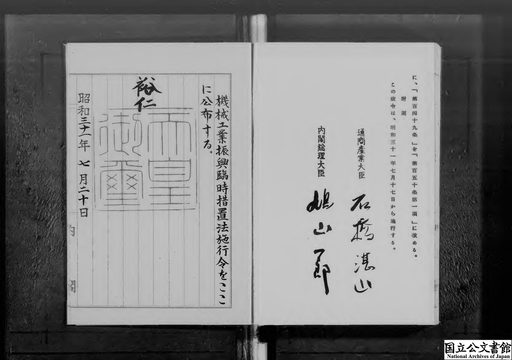 に、「第百四十九条」を「第百五十条第一項」に改める。
附則
この政令は、昭和三十一年七月二十日から施行する。
通商産業大臣
石橋湛山
内閣総理大臣
鳩山一郎
機械工業振興臨時措置法施行令をここ
に公布する。
裕仁
天皇
御璽
昭和三十一年七月二十日
国立公文書館
National Archives of Japan